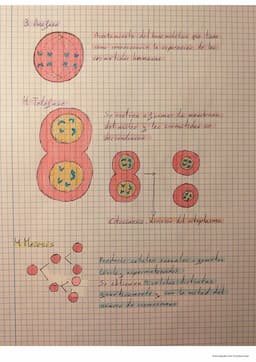 3. Anafase
Acortamiento del huso mitótico que tiene
como consecuencia la separación de las
cromátidas hermanas.
4. Telofase
Se vuelven a formar las membranas
del núcleo y las cromátidas se
Citocinesis: división del citoplasma
4. Meiosis
Produce células sexuales o gametos
óvulos y espermatozoides.
Se obtienen 4 células distintas
genéticamente y con la mitad del
número de cromosomas